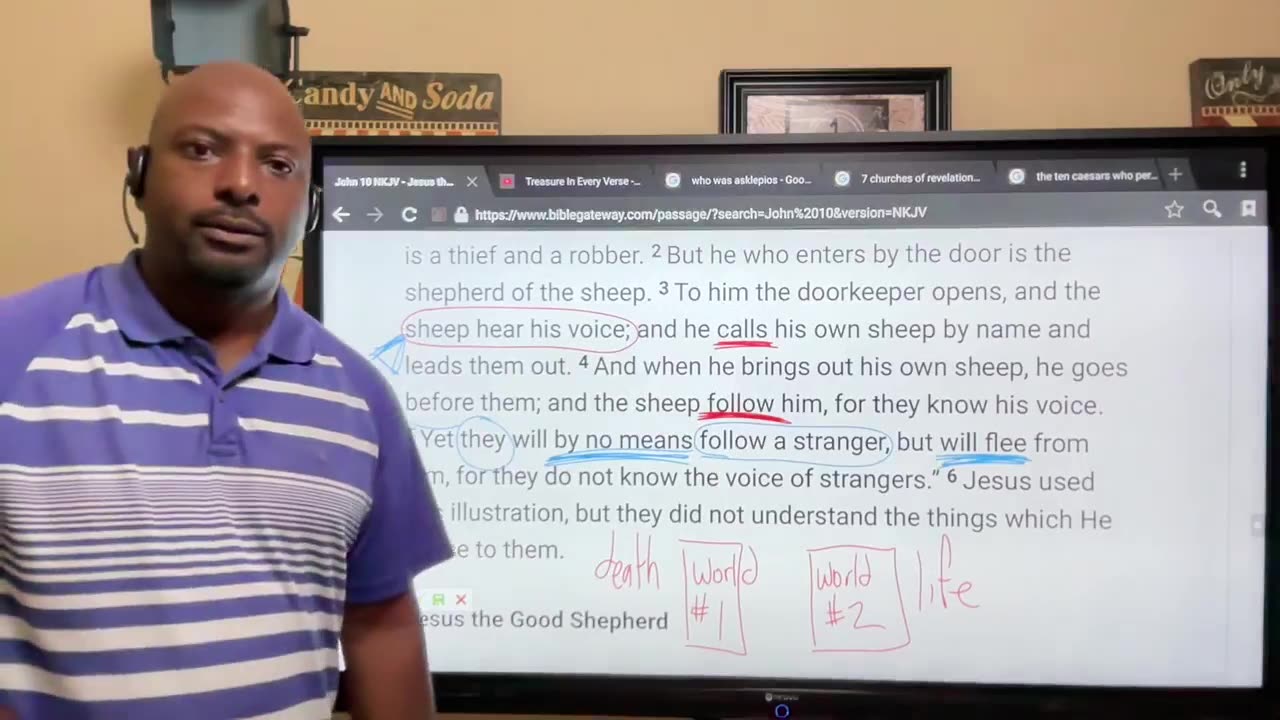 Candy AND Soda
Only
John 10 NKJV - Jesus th...
Treasure In Every Verse -...
who was asklepios - Goo...
7 churches of revelation...
the ten caesars who per...
https://www.biblegateway.com/passage/?search=John%2010&version=NKJV
is a thief and a robber. 2 But he who enters by the door is the
shepherd of the sheep. 3 To him the doorkeeper opens, and the
sheep hear his voice; and he calls his own sheep by name and
leads them out. 4 And when he brings out his own sheep, he goes
before them; and the sheep follow him, for they know his voice.
Yet they will by no means follow a stranger, but will flee from
m, for they do not know the voice of strangers.” 6 Jesus used
illustration, but they did not understand the things which He
e to them.
death World #1 World #2 life
esus the Good Shepherd